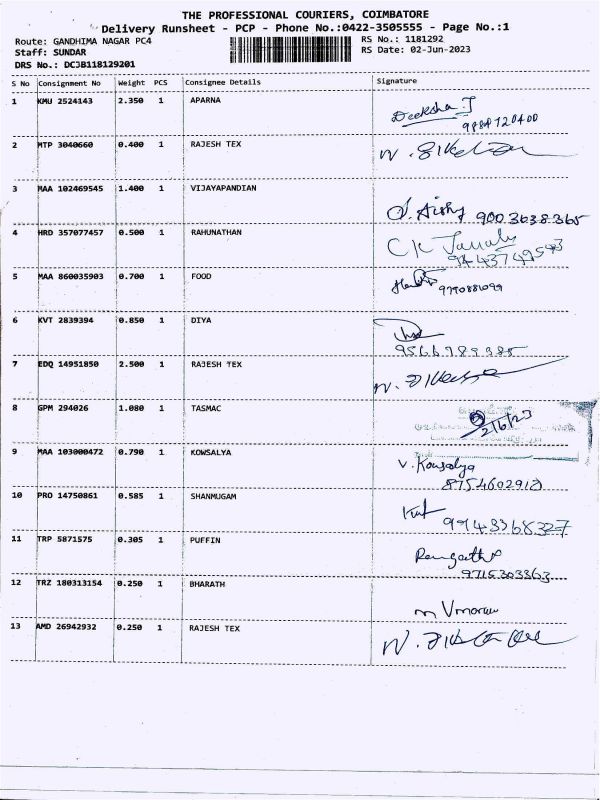 THE PROFESSIONAL COURIERS, COIMBATORE
Delivery Runsheet - PCP - Phone No.:0422-3505555 - Page No.:1
Route: GANDHIMA NAGAR PC4 RS No.: 1181292
Staff: SUNDAR RS Date: 02-Jun-2023
DRS No.: DCJB118129201
S No Consignment No Weight PCS Consignee Details Signature
1 KMU 2524143 2.350 1 APARNA Deeksha J
9884720400
2 MTP 3040660 0.400 1 RAJESH TEX
3 MAA 102469545 1.400 1 VIJAYAPANDIAN
9003638365
4 HRD 357077457 0.500 1 RAHUNATHAN
9443749593
5 MAA 860035903 0.700 1 FOOD
6 KVT 2839394 0.850 1 DIYA
9566989385
7 EDQ 14951850 2.500 1 RAJESH TEX
8 GPM 294026 1.080 1 TASMAC
2/6/23
9 MAA 103000472 0.790 1 KOWSALYA V. Kowsalya
8754602918
10 PRO 14750861 0.585 1 SHANMUGAM
9943368327
11 TRP 5871575 0.305 1 PUFFIN
9715303363
12 TRZ 180313154 0.250 1 BHARATH
13 AMD 26942932 0.250 1 RAJESH TEX